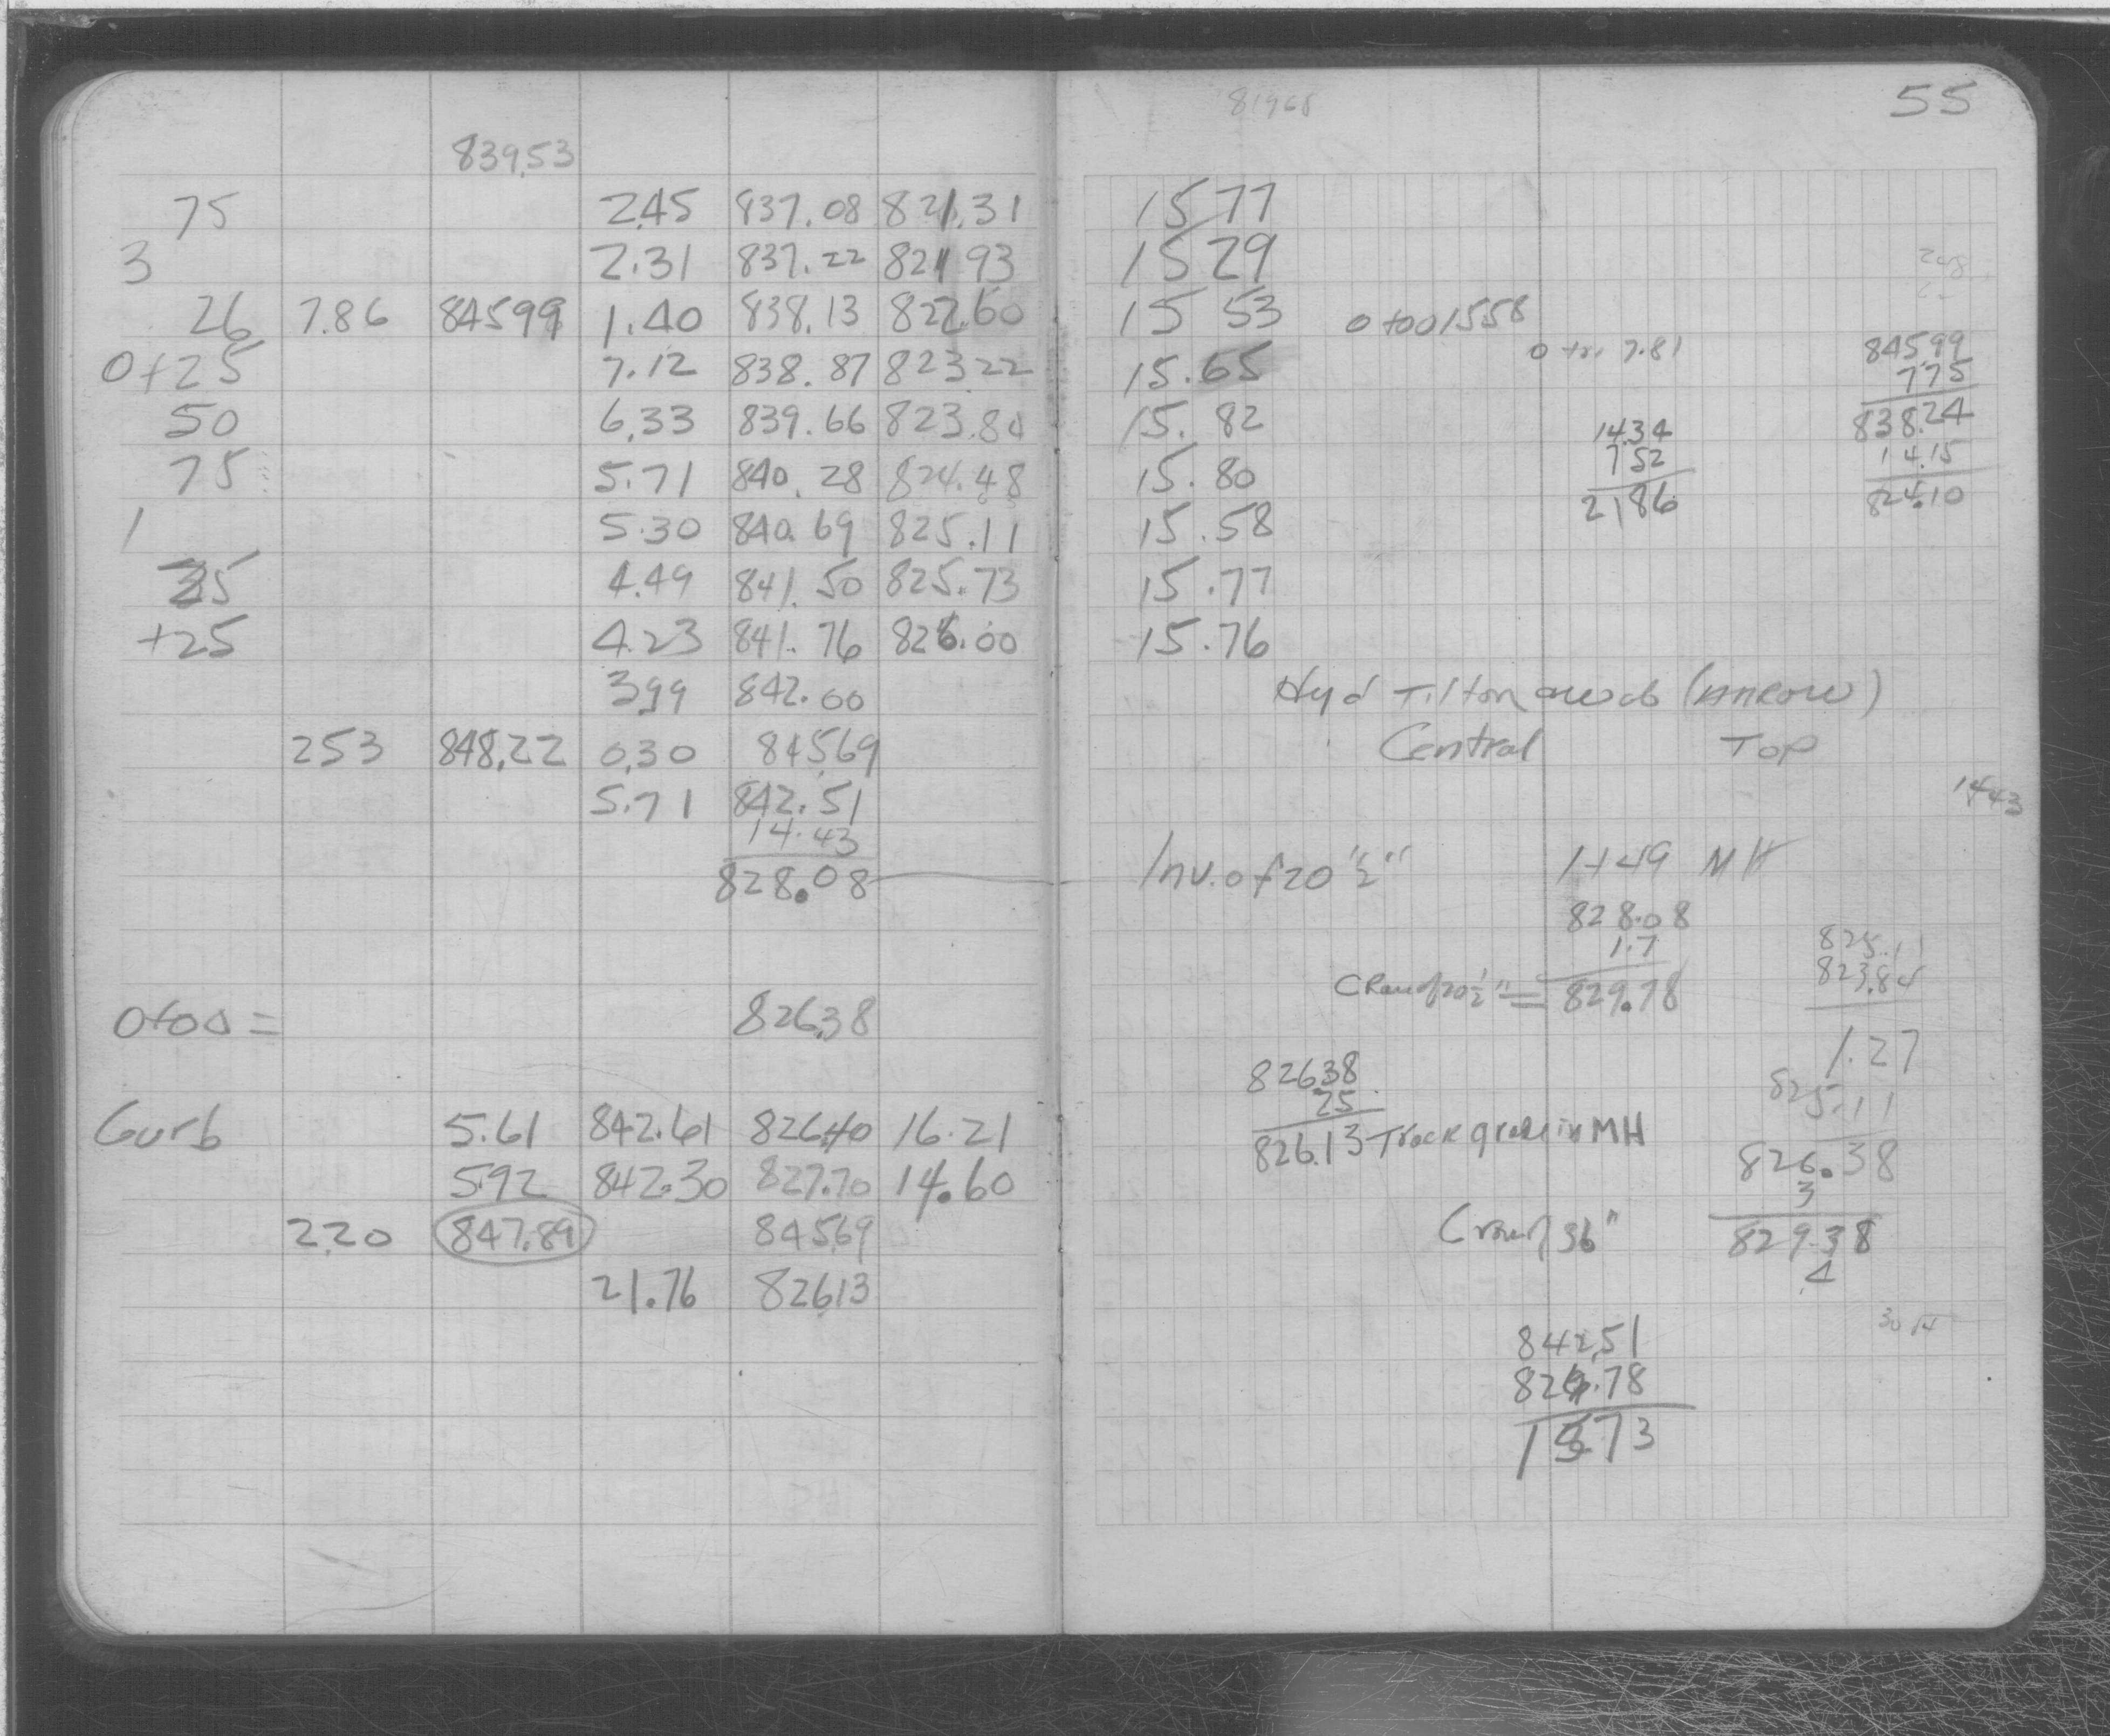 839.53
75 2.45 837.08 821.31
3 2.31 837.22 821 93
26 7.86 84599 1.40 838.13 822.60
0+25 7.12 838.87 82322
50 6.33 839.66 823.84
75 5.71 840.28 824.48
1 5.30 840.69 825.11
35 4.49 841.50 825.73
+25 4.23 841.76 826.00
3.99 842.00
253 848.22 0.30 845.69
5.71 842.51
14.43
828.08
0+00 = 826.38
Curb 5.61 842.61 826.40 16.21
5.92 842.30 827.70 14.60
2.20 847.89 845.69
21.76 826.13
81968
55
15 77
15 29
15 53 0+00 1558
15.65 7.81
15. 82
15. 80
15.58
15.77
15.76
845.99
7.75
838.24
14.15
824.10
14.34
7 52
21 86
Hyd Tilton (arrow)
Central Top
14 43
Inv. of 20 1/2" 1+49 MH
828.08
1.7
Crown of 20 1/2" = 829.78
825.11
823.84
1.27
825.11
826.38
3
829.38
4
826.38
25
826.13 Track grade in MH
Crown of 36"
842.51
826.78
15 73